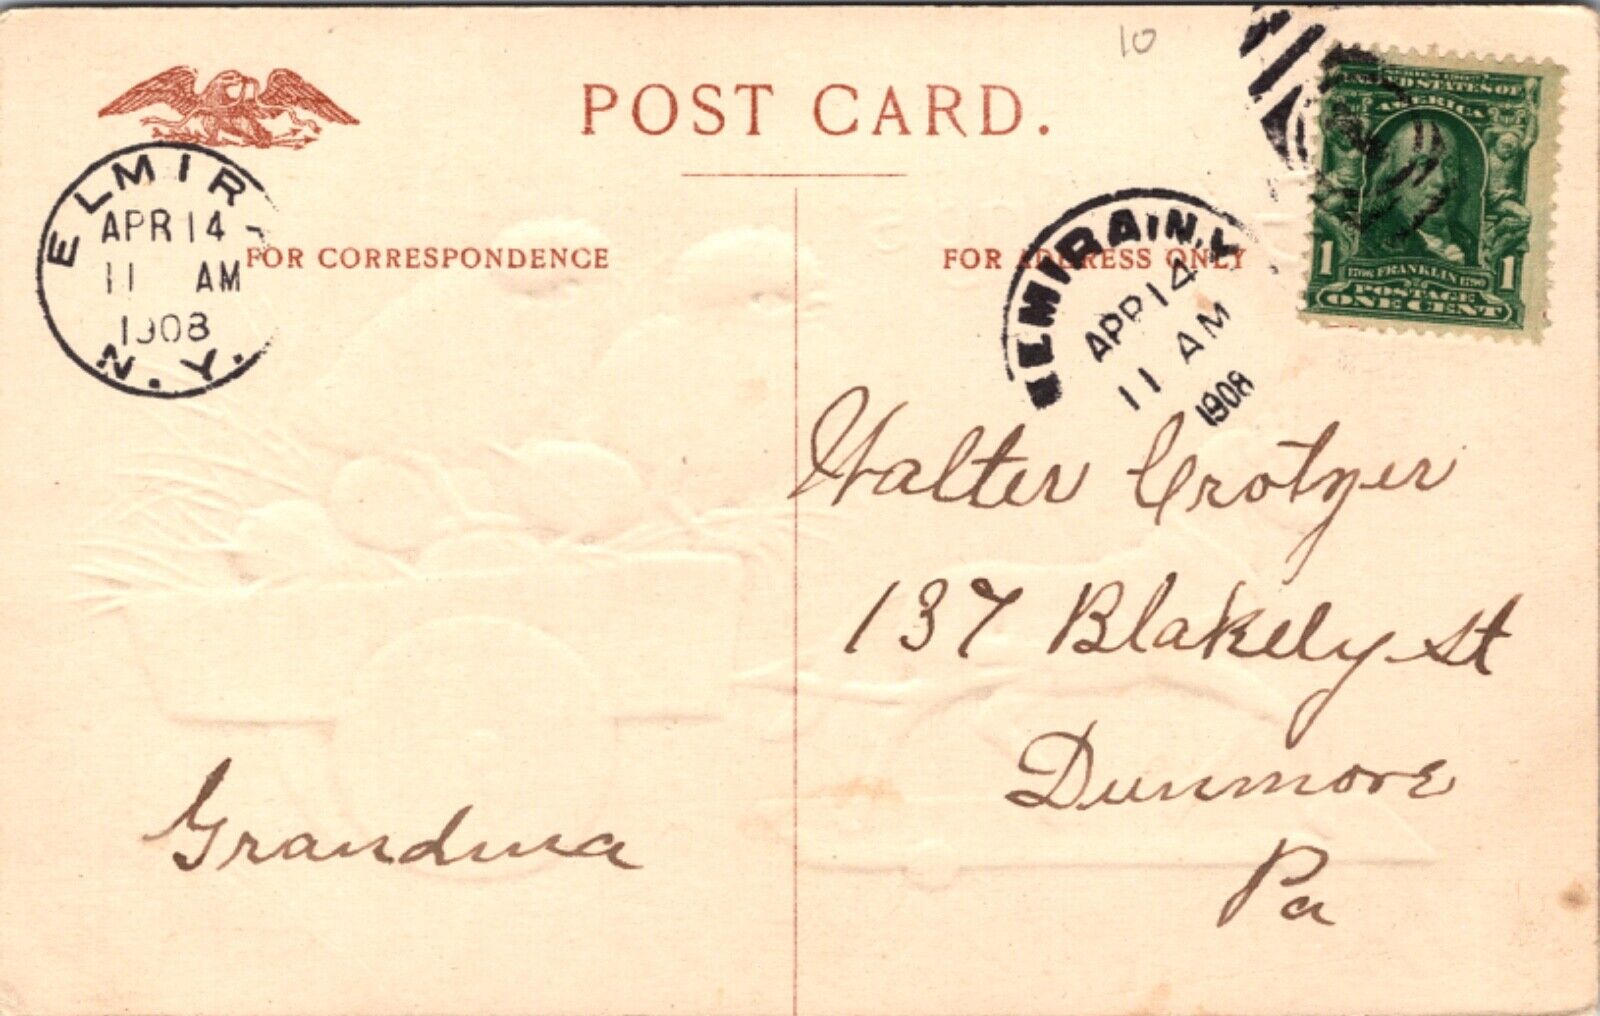 10
POST CARD.
ELMIR
APR 14
11 AM
1908
N.Y.
FOR CORRESPONDENCE
FOR ADDRESS ONLY
ELMIRA, N.Y.
APR 14
11 AM
1908
SERIES 1902
UNITED STATES OF
AMERICA
1 1790 FRANKLIN 1790 1
POSTAGE
ONE CENT
Walter Crotzer
137 Blakely St
Dunmore
Pa
Grandma